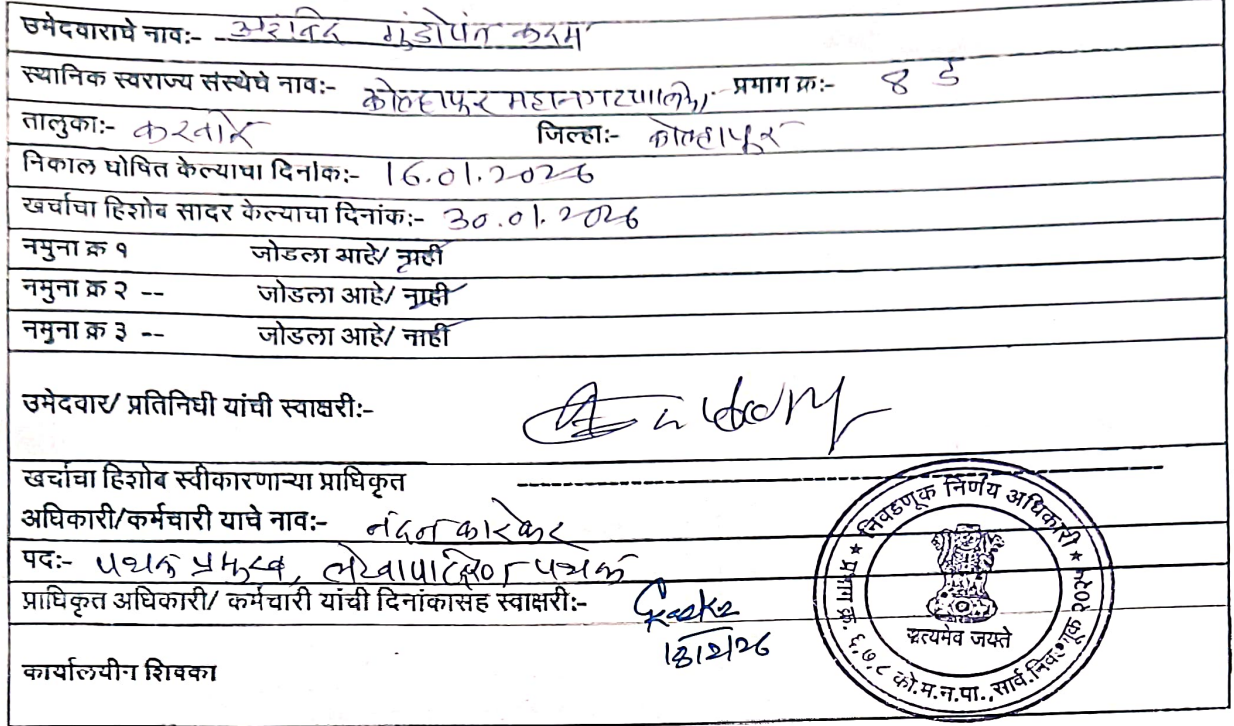 उमेदवाराचे नाव:- अरविंद गुंडोपंत कदम
स्थानिक स्वराज्य संस्थेचे नाव:- कोल्हापूर महानगरपालिका, प्रमाग क्र:- 8 ड
तालुका:- करवीर जिल्हा:- कोल्हापूर
निकाल घोषित केल्याचा दिनांक:- 16.01.2026
खर्चाचा हिशोब सादर केल्याचा दिनांक:- 30.01.2026
नमुना क्र १ जोडला आहे/ नाही
नमुना क्र २ -- जोडला आहे/ नाही
नमुना क्र ३ -- जोडला आहे/ नाही
उमेदवार/ प्रतिनिधी यांची स्वाक्षरी:-
खर्चाचा हिशोब स्वीकारणाऱ्या प्राधिकृत
अधिकारी/कर्मचारी याचे नाव:- नंदन कारेकर
पद:- पथक प्रमुख, लेखापरिक्षण पथक
प्राधिकृत अधिकारी/ कर्मचारी यांची दिनांकासह स्वाक्षरी:-
कार्यालयीन शिक्का
★ निवडणूक निर्णय अधिकारी ★
प्रभाग क्र. ६,७,८ को.म.न.पा.,सार्व.निवडणूक २०२५
सत्यमेव जयते